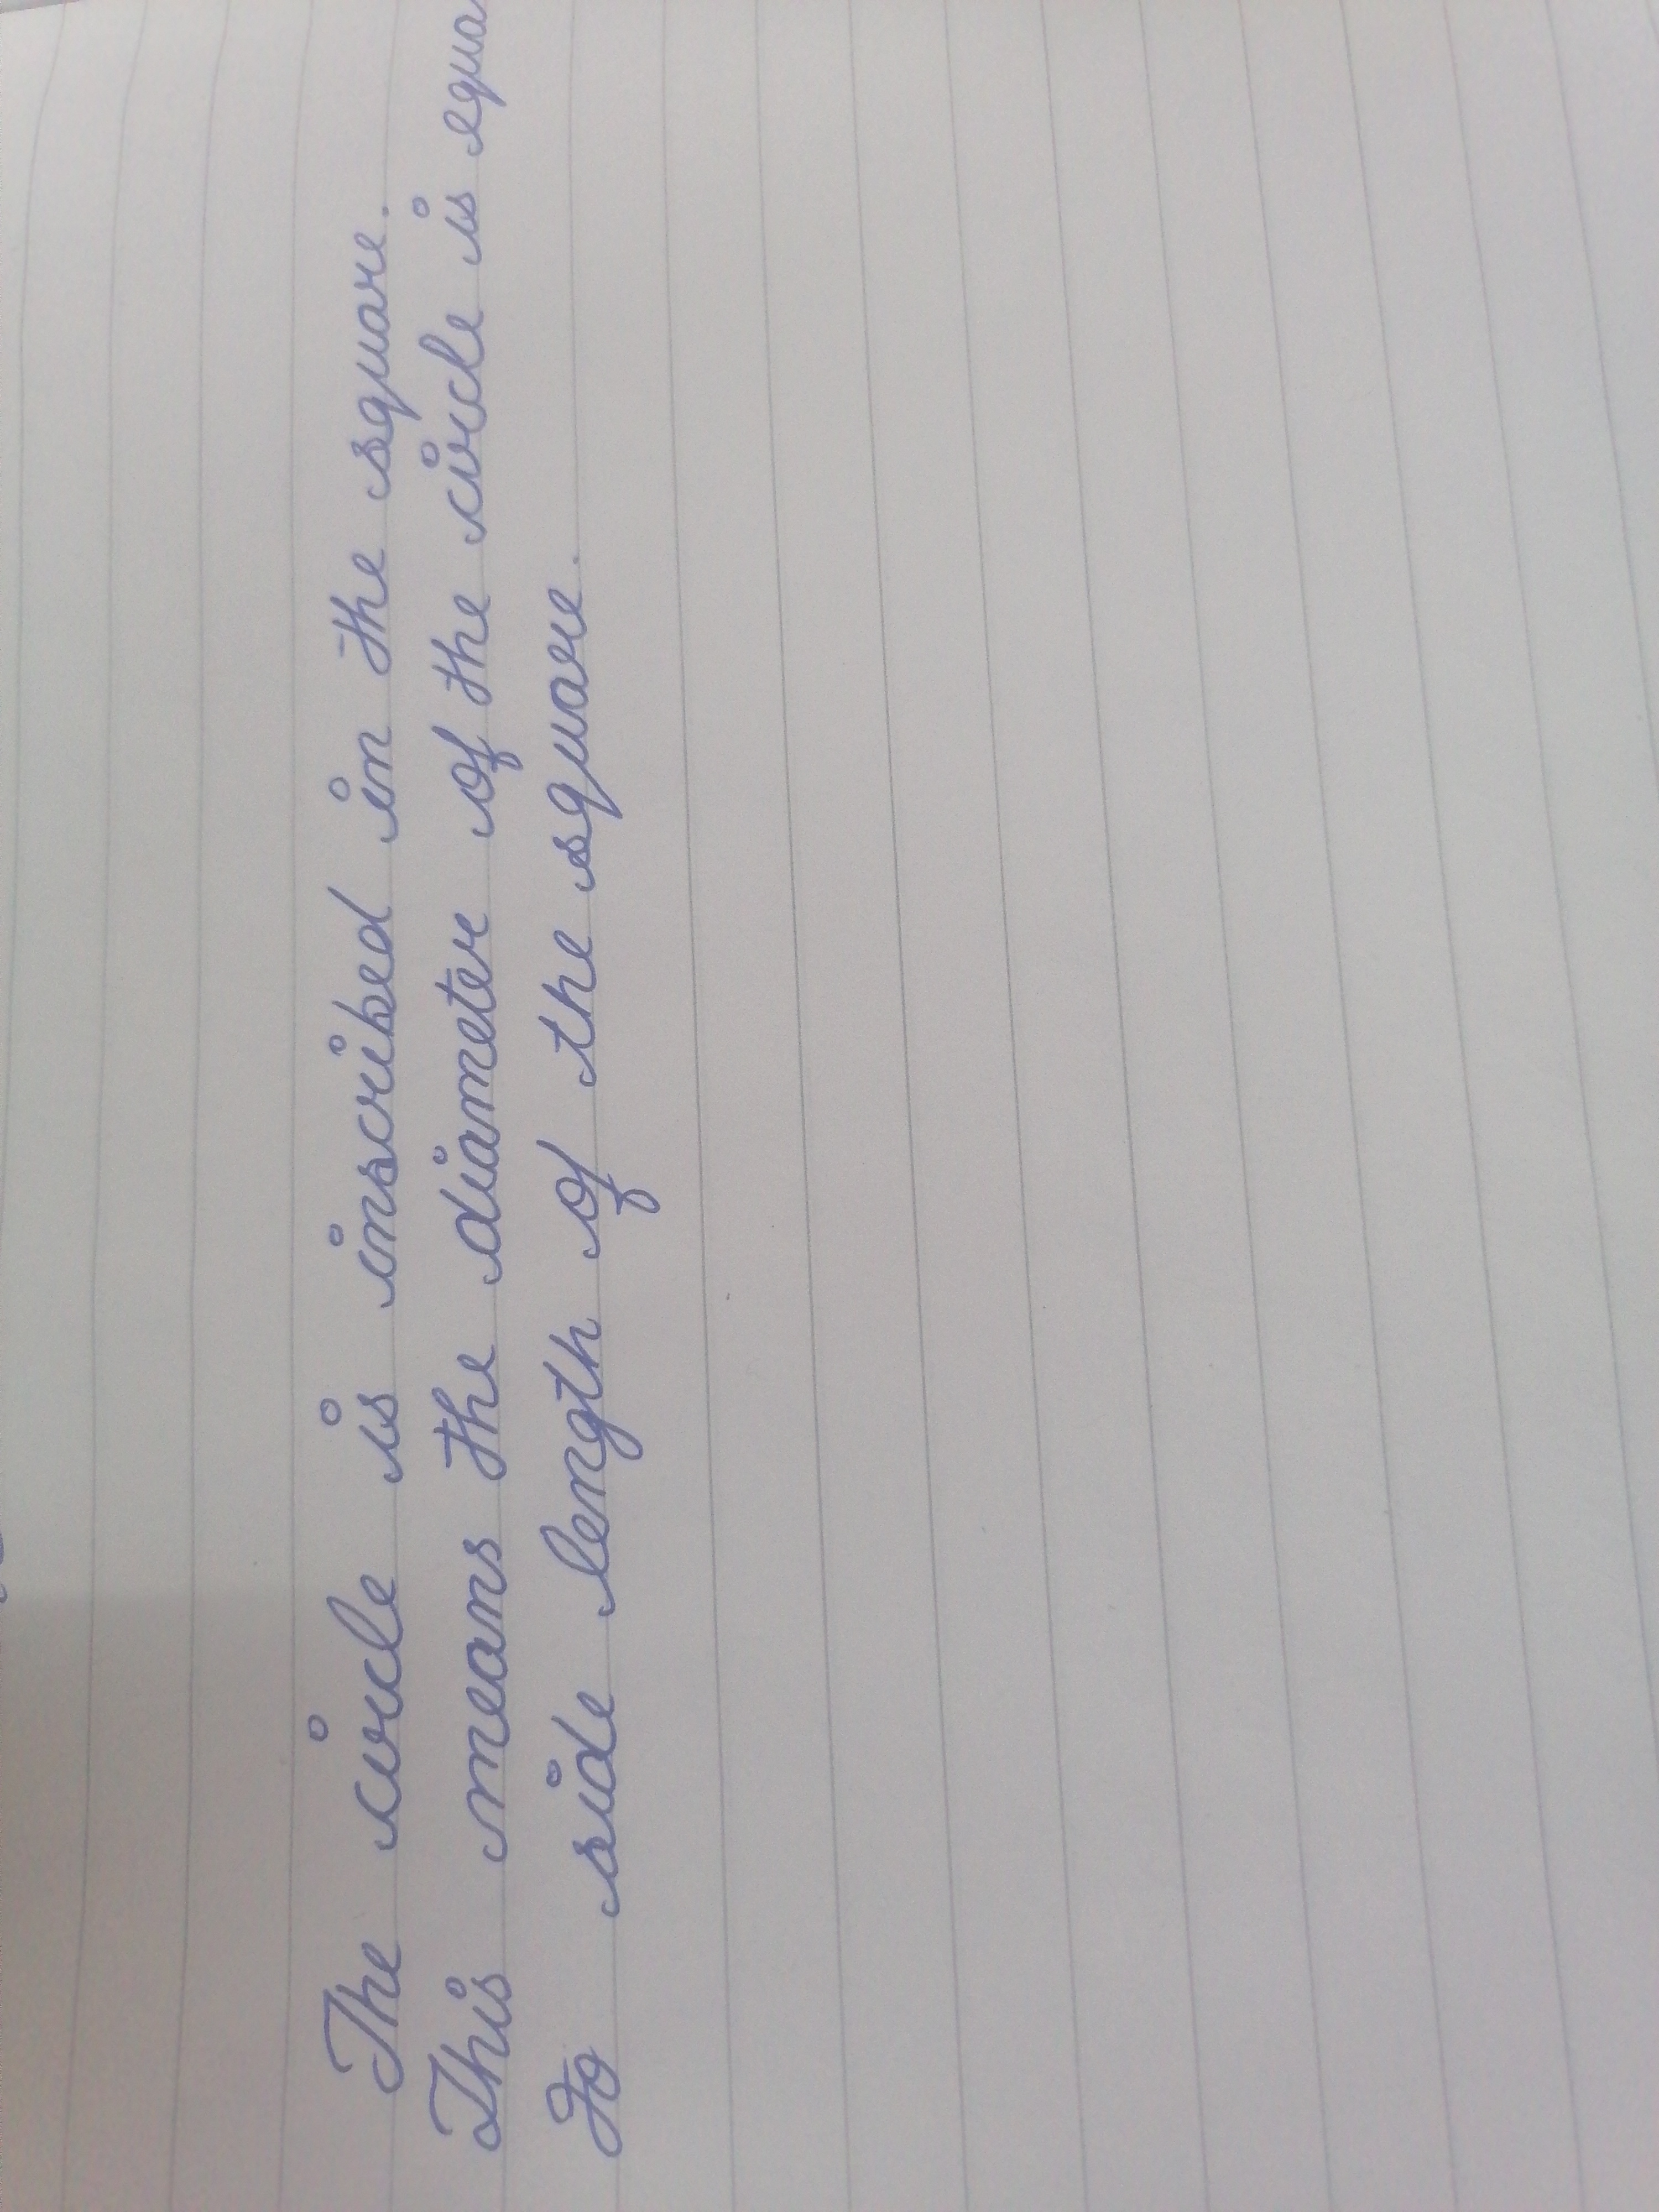 The circle is inscribed in the square.
This means the diameter of the circle is equa
To side length of the square.